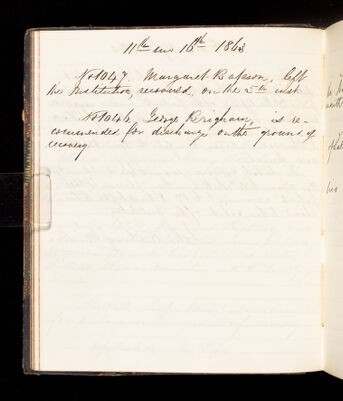 11th mo 16th 1863
No 1047. Margaret Basson, left
the Institution, recovered, on the 5th inst
No 1046. George Brigham, is re-
commended for discharge on the ground of
recovery